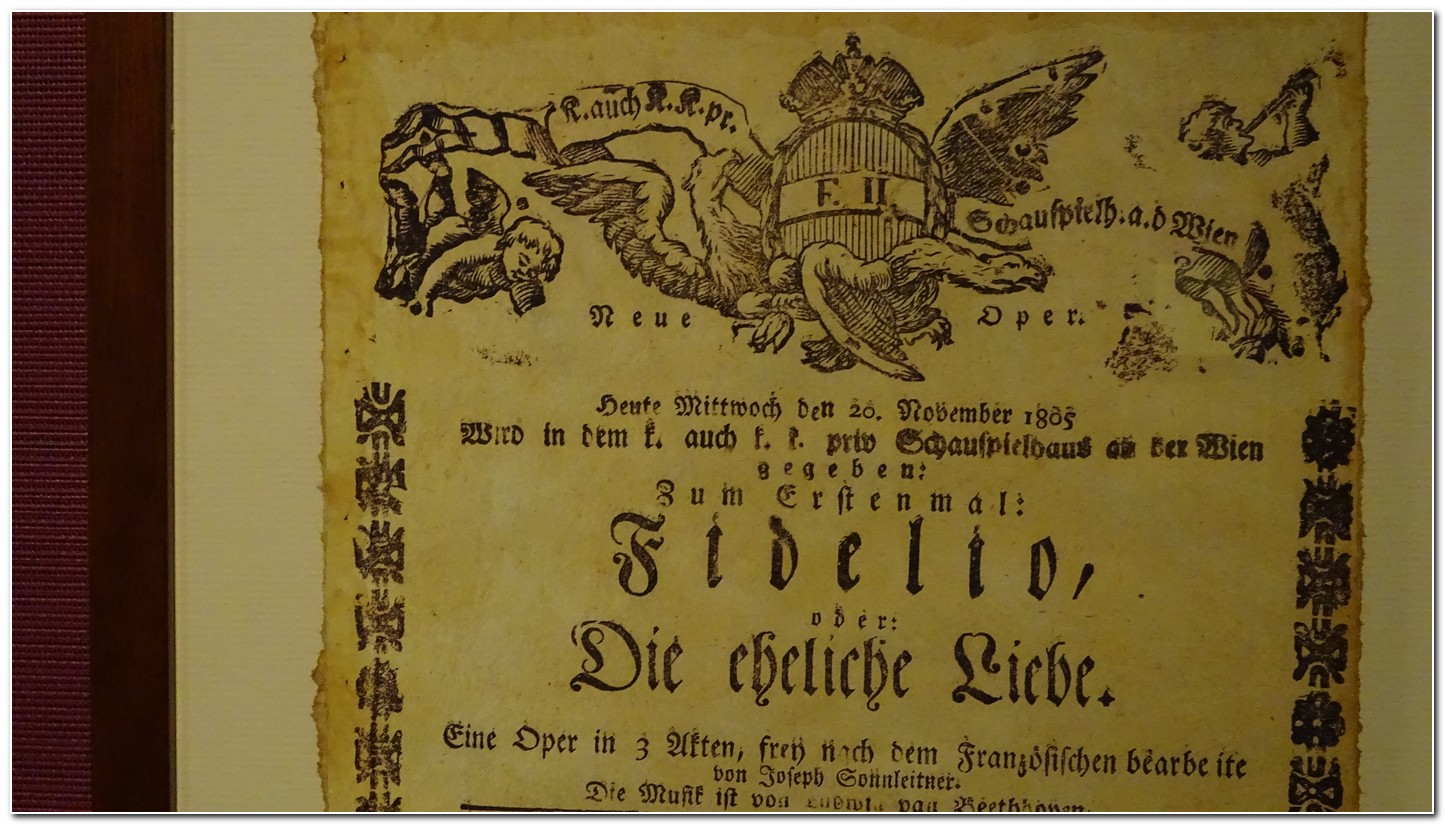 K. auch K. K. pr.
F. II.
Schauspielh. a. d Wien
Neue Oper.
Heute Mittwoch den 20. November 1805
Wird in dem k. auch k. k. priv Schauspielhaus an der Wien
gegeben:
Zum Erstenmal:
Fidelio,
oder:
Die eheliche Liebe.
Eine Oper in 3 Akten, frey nach dem Französischen bearbeite
von Joseph Sonnleitner.
Die Musik ist von Ludwig van Beethoven.